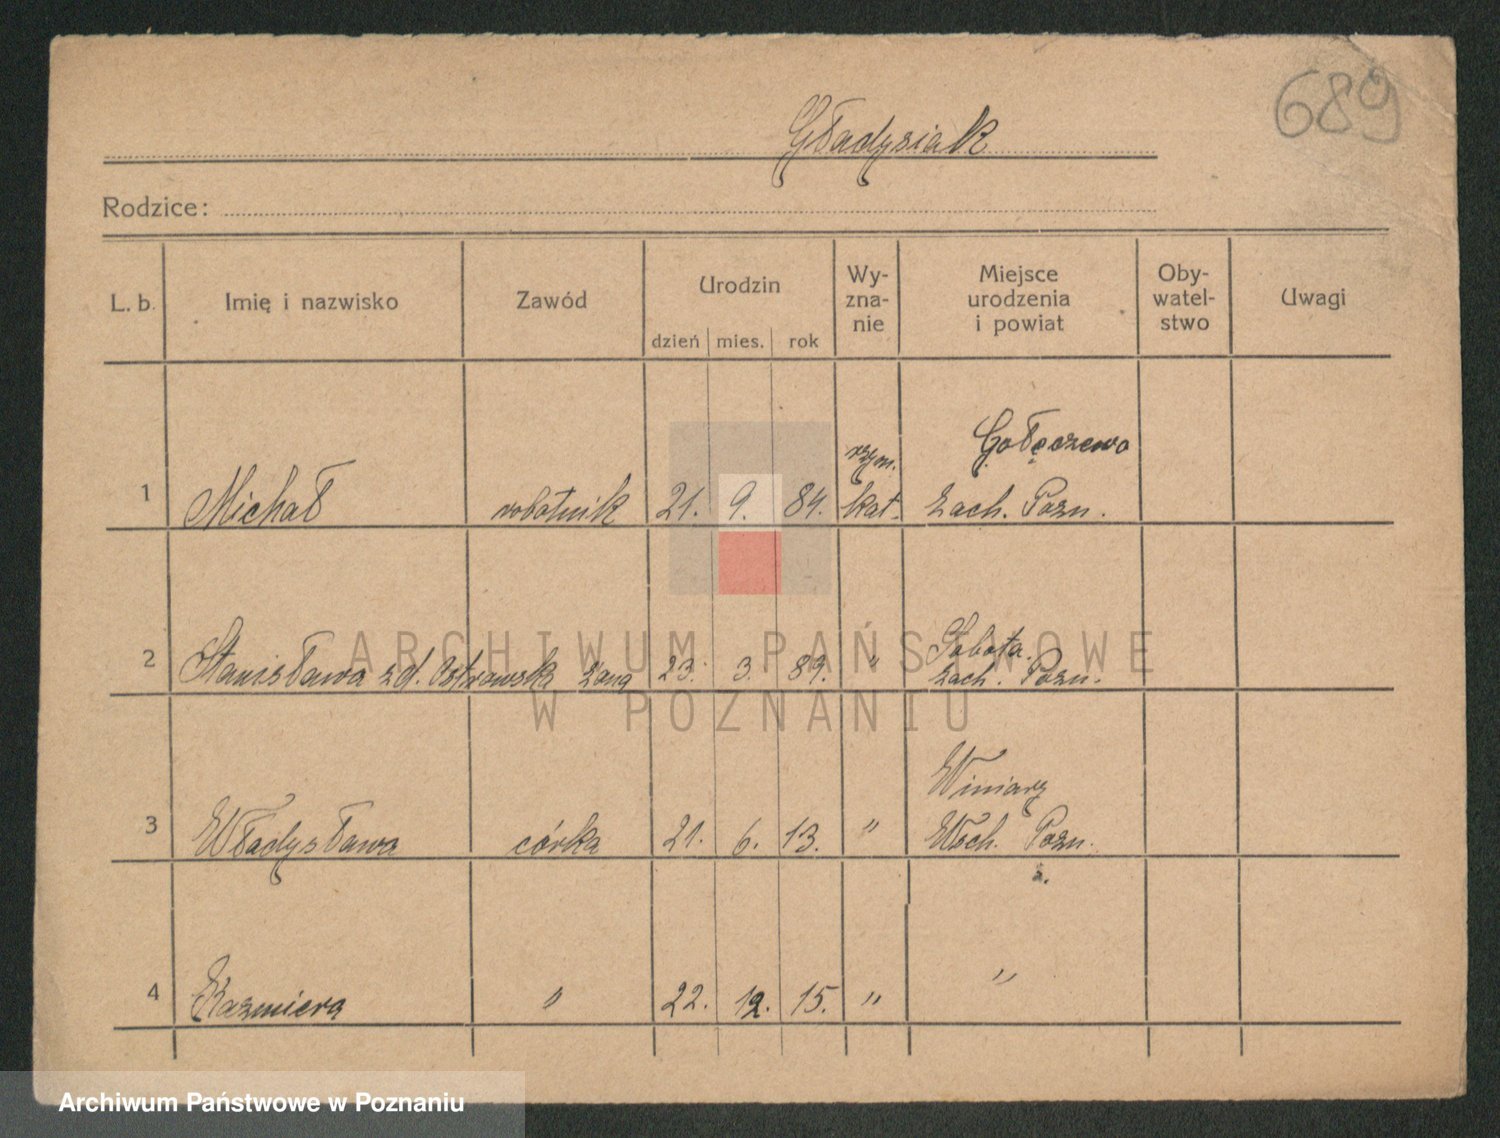 689
Gładysiak
Rodzice:
L. b. Imię i nazwisko Zawód Urodzin dzień mies. rok Wy-zna-nie Miejsce urodzenia i powiat Oby-watel-stwo Uwagi
1 Michał robotnik 21. 9. 84. rzym. kat. Gołęczewo zach. Pozn.
2 Stanisława zd. Ostrowska żona 23. 3. 89. " Sobota zach. Pozn.
3 Władysława córka 21. 6. 13. " Winiary Wsch. Pozn.
4 Kazmiera " 22. 12. 15. " "
ARCHIWUM PAŃSTWOWE
W POZNANIU
Archiwum Państwowe w Poznaniu